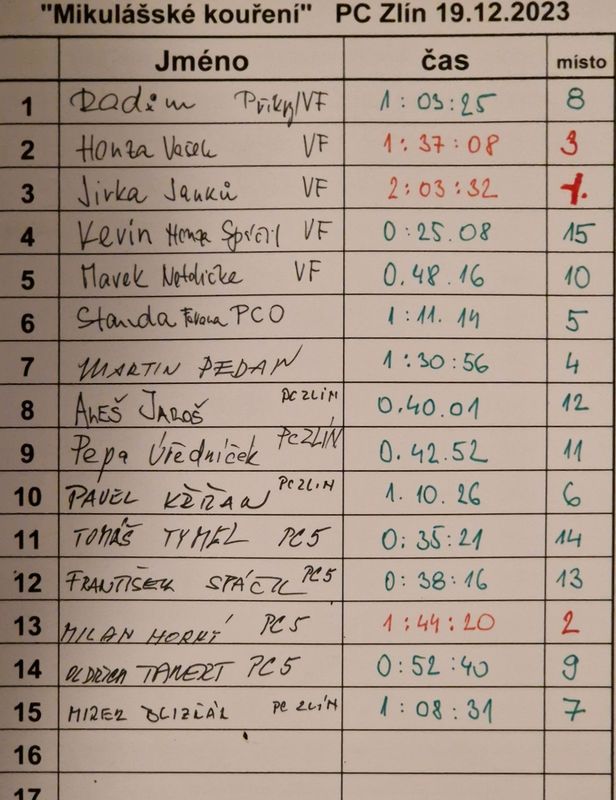 "Mikulášské kouření" PC Zlín 19.12.2023
Jméno čas místo
1 Radim VF 1:03:25 8
2 Honza Vacek VF 1:37:08 3
3 Jirka Janků VF 2:03:32 1.
4 Kevin Honza VF 0:25.08 15
5 Marek VF 0.48.16 10
6 Standa PCO 1:11.14 5
7 MARTIN PEDAN 1:30:56 4
8 ALEŠ JAROŠ PC ZLÍN 0.40.01 12
9 Pepa Úředníček PC ZLÍN 0.42.52 11
10 PAVEL KŘIŽAN PC ZLIN 1.10.26 6
11 TOMÁŠ TYMEL PC5 0:35:21 14
12 FRANTIŠEK SPÁČIL PC5 0:38:16 13
13 MILAN HORKÝ PC5 1:44:20 2
14 OLDŘICH TANERT PC5 0:52:40 9
15 MIREK PC ZLÍN 1:08:31 7
16
17